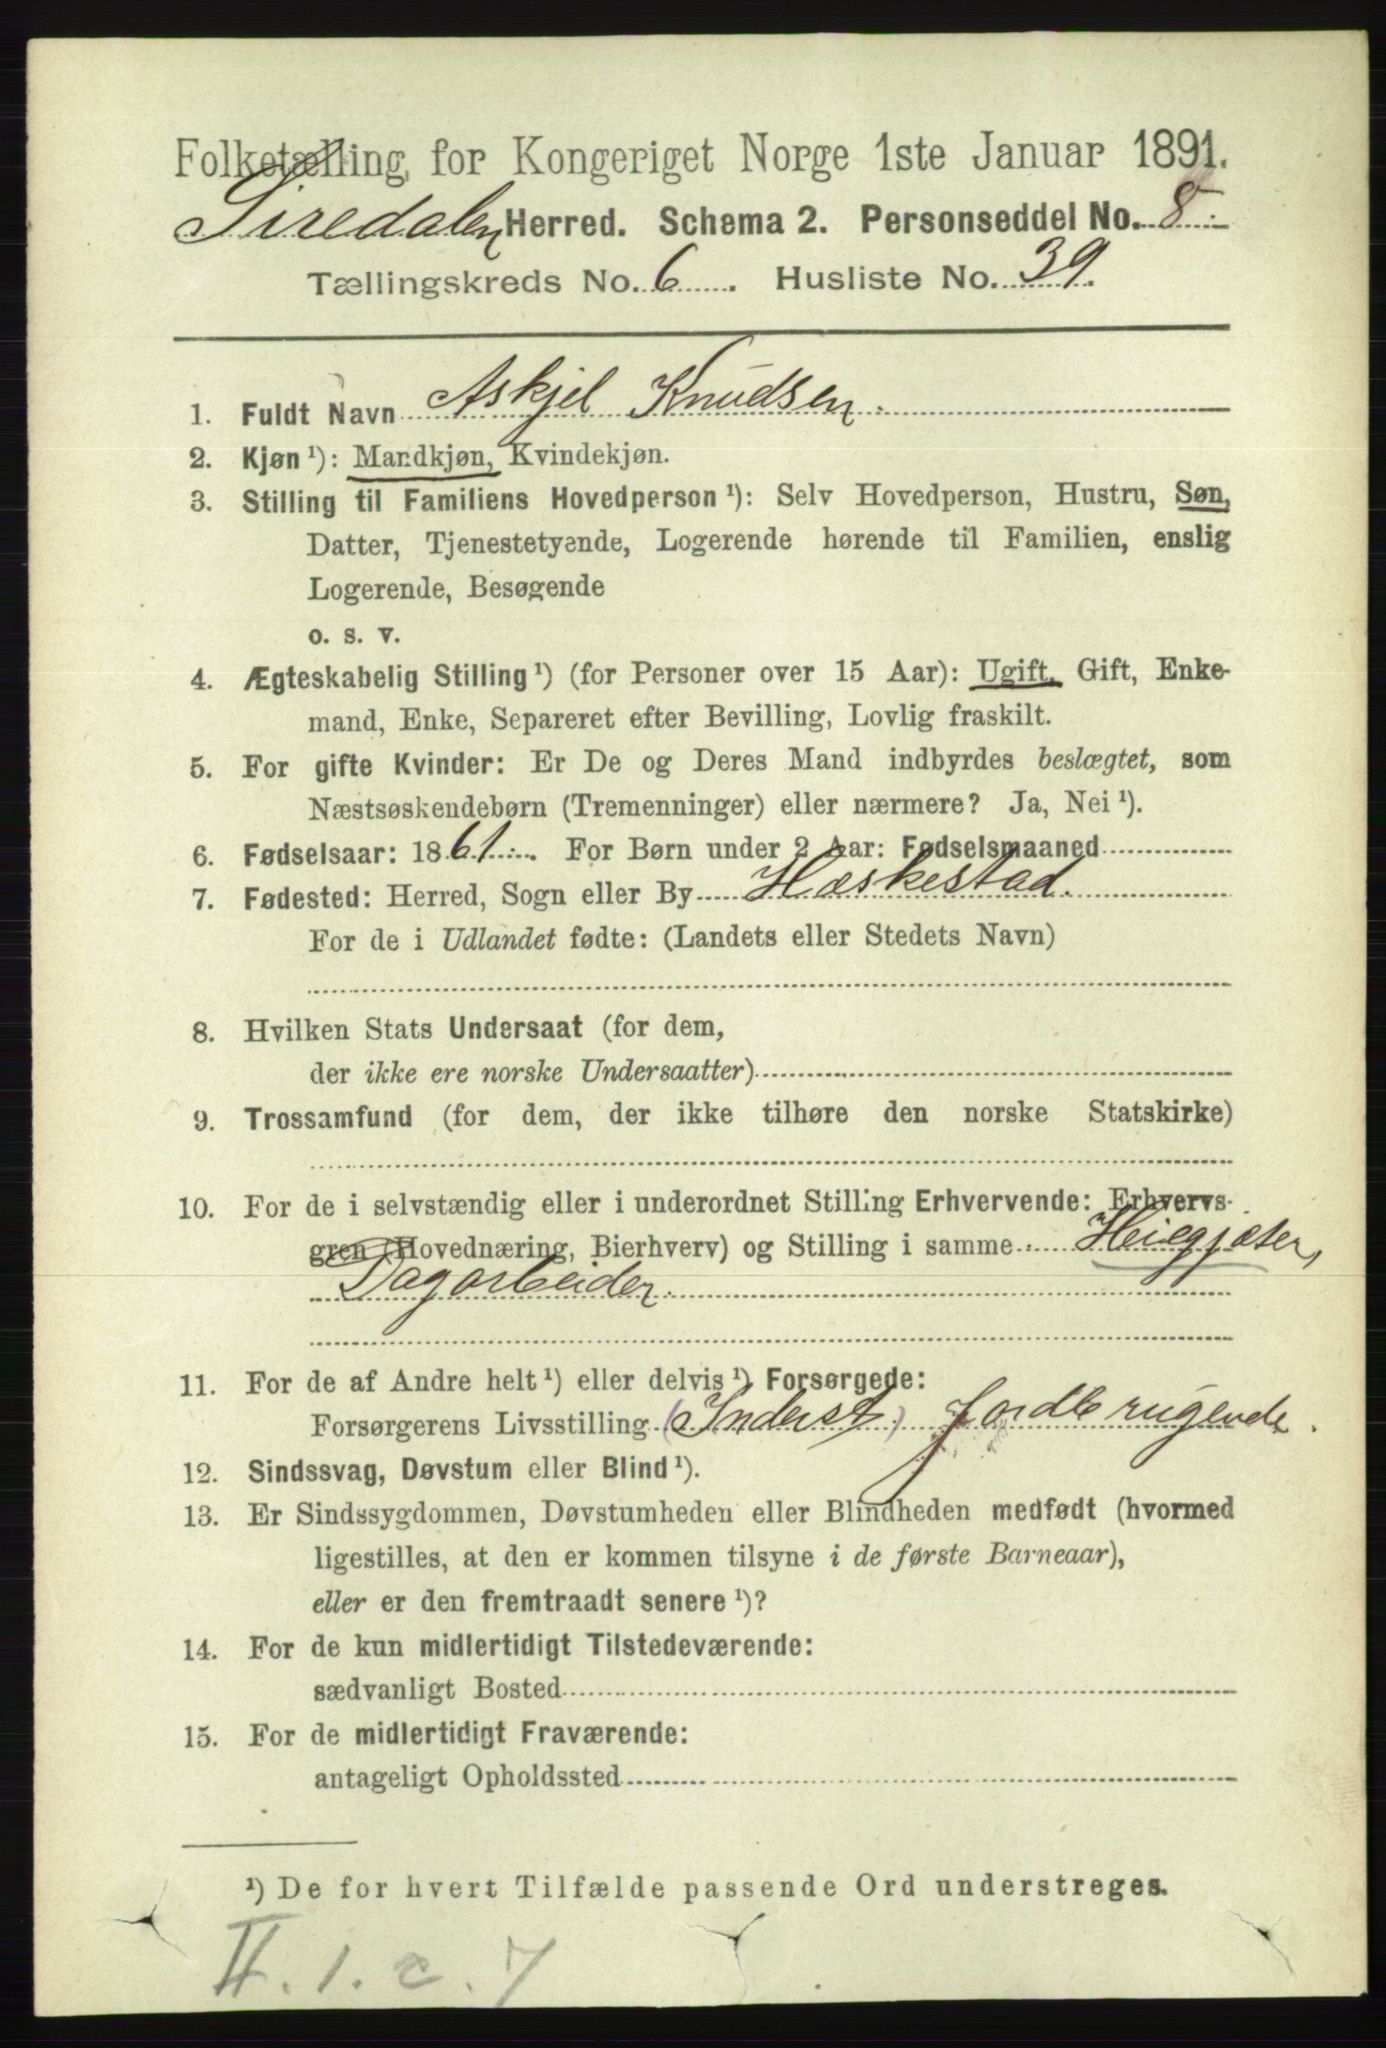 Folketælling for Kongeriget Norge 1ste Januar 1891.
Siredalen Herred. Schema 2. Personseddel No. 8
Tællingskreds No. 6 . Husliste No. 39.
1. Fuldt Navn Askjel Knudsen.
2. Kjøn ¹): Mandkjøn, Kvindekjøn.
3. Stilling til Familiens Hovedperson ¹): Selv Hovedperson, Hustru, Søn,
Datter, Tjenestetyende, Logerende hørende til Familien, enslig
Logerende, Besøgende
o. s. v.
4. Ægteskabelig Stilling ¹) (for Personer over 15 Aar): Ugift, Gift, Enke-
mand, Enke, Separeret efter Bevilling, Lovlig fraskilt.
5. For gifte Kvinder: Er De og Deres Mand indbyrdes beslægtet, som
Næstsøskendebørn (Tremenninger) eller nærmere? Ja, Nei ¹).
6. Fødselsaar: 1861. For Børn under 2 Aar: Fødselsmaaned
7. Fødested: Herred, Sogn eller By Hæskestad.
For de i Udlandet fødte: (Landets eller Stedets Navn)
8. Hvilken Stats Undersaat (for dem,
der ikke ere norske Undersaatter)
9. Trossamfund (for dem, der ikke tilhøre den norske Statskirke)
10. For de i selvstændig eller i underordnet Stilling Erhvervende: Erhvervs-
gren (Hovednæring, Bierhverv) og Stilling i samme Heiegjæter,
Dagarbeider.
11. For de af Andre helt ¹) eller delvis ¹) Forsørgede:
Forsørgerens Livsstilling (Inderst) Jordbrugende.
12. Sindssvag, Døvstum eller Blind ¹).
13. Er Sindssygdommen, Døvstumheden eller Blindheden medfødt (hvormed
ligestilles, at den er kommen tilsyne i de første Barneaar),
eller er den fremtraadt senere ¹)?
14. For de kun midlertidigt Tilstedeværende:
sædvanligt Bosted
15. For de midlertidigt Fraværende:
antageligt Opholdssted
¹) De for hvert Tilfælde passende Ord understreges.
II. 1. c. 7